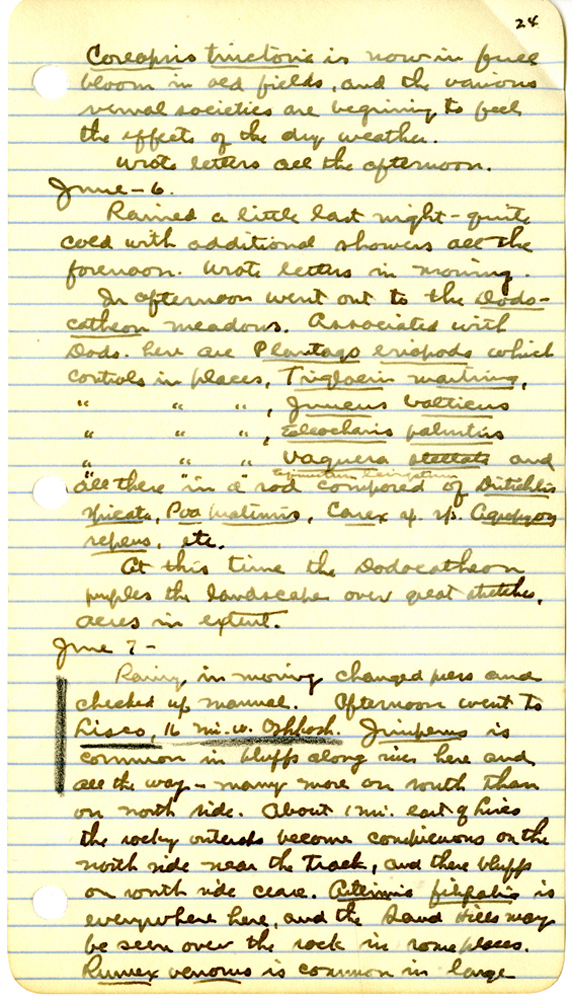 24
Coreopsis tinctoria is now in full
bloom in old fields, and the various
vernal societies are beginning to feel
the effects of the dry weather.
Wrote letters all the afternoon.
June - 6.
Rained a little last night - quite
cold with additional showers all the
forenoon. Wrote letters in morning.
In afternoon went out to the Dode-
catheon meadows. Associated with
Dode. here are Plantago eriopoda which
controls in places, Triglochin maritima,
" " " , Juncus balticus
" " " , Eleocharis palustris
" " " Vaguera stellata and
all there "in a" sod composed of Distichlis
spicata, Poa pratensis, Carex sp. sp. Agropyron
repens, etc.
At this time the Dodecatheon
purples the landscape over great stretches,
acres in extent.
June 7 -
Rainy in morning changed pers and
checked up manual. Afternoon went to
Lisco, 16 mi. w. Oshkosh. Juniperus is
common in bluffs along river here and
all the way - many more on south than
on north side. About 1 mi. east of Lisco
the rocky outcrops become conspicuous on the
north side near the track, and there bluffs
on south side cease. Artemisia filifolia is
everywhere here, and the Sand Hills may
be seen over the rock in some places.
Rumex venosus is common in large